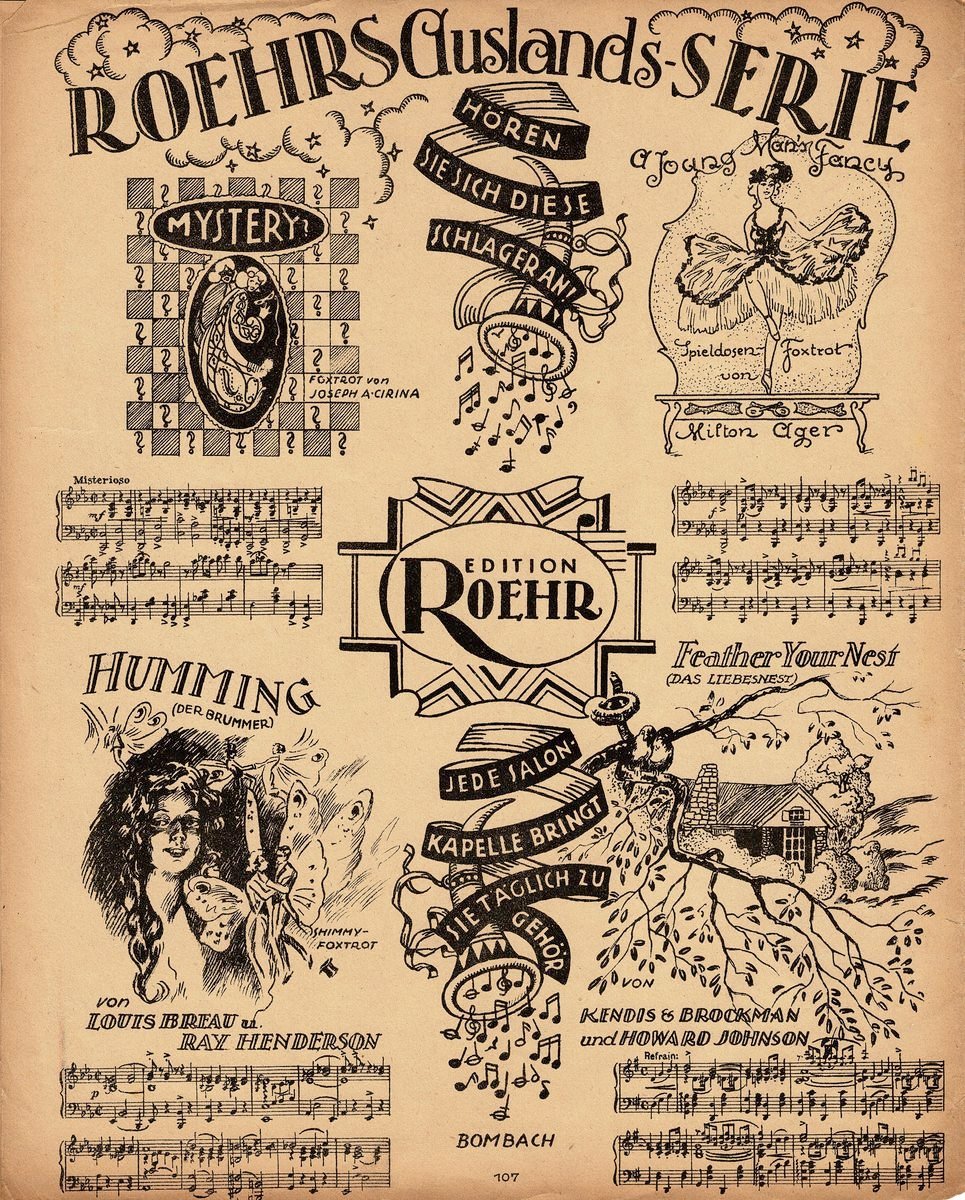 ROEHRS Auslands-SERIE
HÖREN
SIE SICH DIESE
SCHLAGER AN!
MYSTERY?
FOXTROT von
JOSEPH A. CIRINA
A Young Man's Fancy
Spieldosen- Foxtrot
von
Milton Ager
Misterioso
mf
mf
f
EDITION
ROEHR
HUMMING
(DER BRUMMER)
SHIMMY-
FOXTROT
von
LOUIS BREAU u.
RAY HENDERSON
p
Feather Your Nest
(DAS LIEBESNEST)
JEDE SALON-
KAPELLE BRINGT
SIE TÄGLICH ZU
GEHÖR
VON
KENDIS & BROCKMAN
und HOWARD JOHNSON
Refrain:
BOMBACH
107